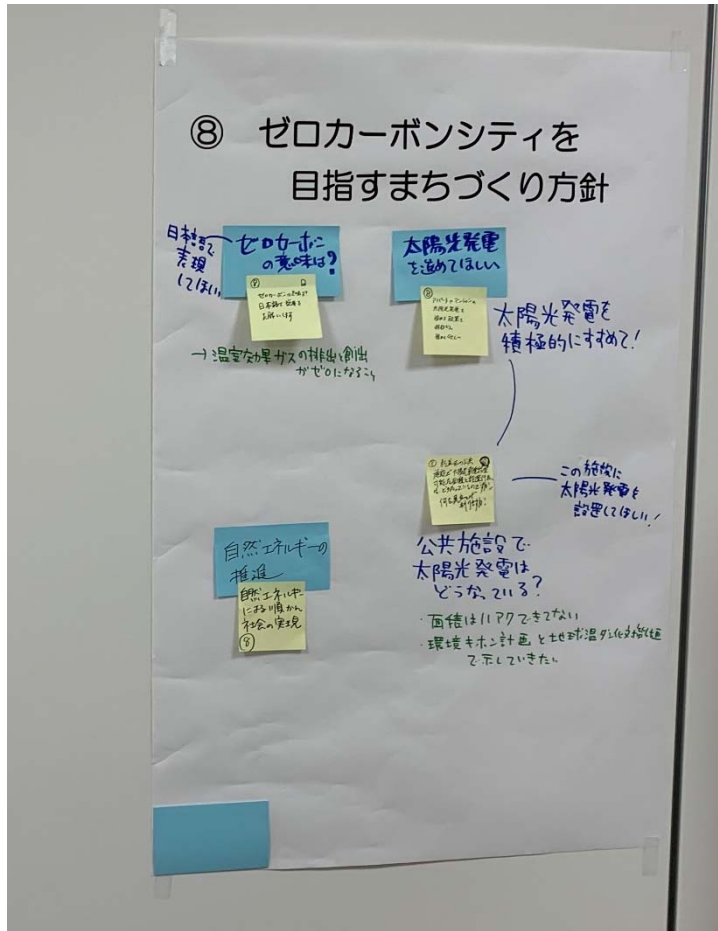 ⑧ ゼロカーボンシティを
目指すまちづくり方針
日本語で
表現
してほしい
ゼロカーボン
の意味は?
⑧
ゼロカーボンの意味は?
日本語で
お願いします
→温室効果ガスの排出と創出
がゼロになること
太陽光発電
を進めてほしい
⑧
太陽光発電を
太陽光発電を
積極的にすすめて!
この施設に
太陽光発電を
設置してほしい!
公共施設で
太陽光発電は
どうなっている?
・面積はハアクできてない
・環境キホン計画と地球温ダン化対
で示していきたい
自然エネルギーの
推進
自然エネルギー
による循かん
社会の実現
⑧